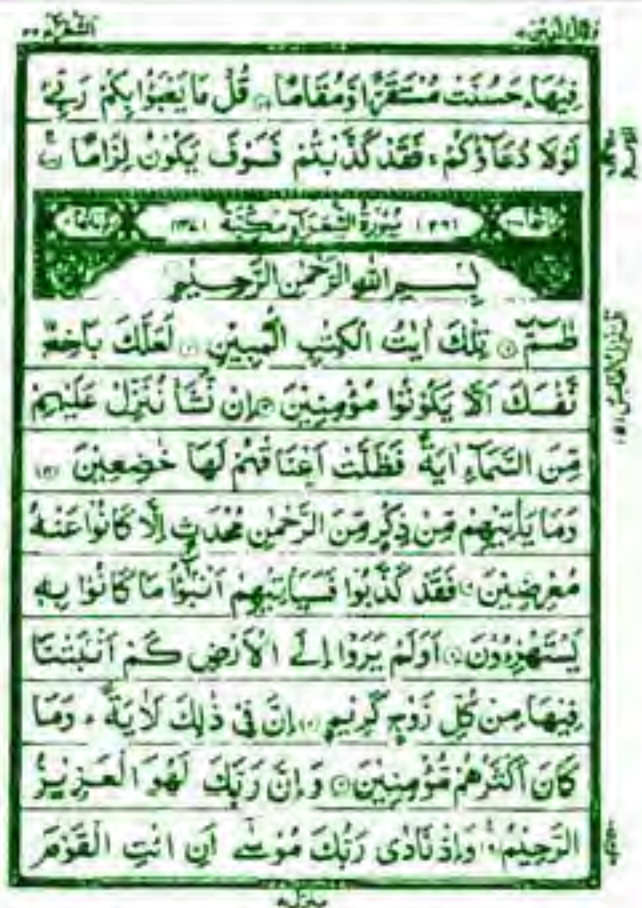 وقال الذين ١٩
الشعراء ٢٦
فِيْهَا ؕ حَسُنَتْ مُسْتَقَرًّا وَّمُقَامًا ۞ قُلْ مَا يَعْبَؤُا بِكُمْ رَبِّيْ
لَوْلَا دُعَآؤُكُمْ ۚ فَقَدْ كَذَّبْتُمْ فَسَوْفَ يَكُوْنُ لِزَامًا ۞
سُوْرَةُ الشُّعَرَآءِ مَكِّيَّةٌ
بِسْمِ اللّٰهِ الرَّحْمٰنِ الرَّحِيْمِ
طٰسٓمّٓ ۞ تِلْكَ اٰيٰتُ الْكِتٰبِ الْمُبِيْنِ ۞ لَعَلَّكَ بَاخِعٌ
نَّفْسَكَ اَلَّا يَكُوْنُوْا مُؤْمِنِيْنَ ۞ اِنْ نَّشَاْ نُنَزِّلْ عَلَيْهِمْ
مِّنَ السَّمَآءِ اٰيَةً فَظَلَّتْ اَعْنَاقُهُمْ لَهَا خٰضِعِيْنَ ۞
وَمَا يَاْتِيْهِمْ مِّنْ ذِكْرٍ مِّنَ الرَّحْمٰنِ مُحْدَثٍ اِلَّا كَانُوْا عَنْهُ
مُعْرِضِيْنَ ۞ فَقَدْ كَذَّبُوْا فَسَيَاْتِيْهِمْ اَنْۢبٰٓؤُا مَا كَانُوْا بِهٖ
يَسْتَهْزِءُوْنَ ۞ اَوَلَمْ يَرَوْا اِلَى الْاَرْضِ كَمْ اَنْۢبَتْنَا
فِيْهَا مِنْ كُلِّ زَوْجٍ كَرِيْمٍ ۞ اِنَّ فِيْ ذٰلِكَ لَاٰيَةً ؕ وَمَا
كَانَ اَكْثَرُهُمْ مُّؤْمِنِيْنَ ۞ وَاِنَّ رَبَّكَ لَهُوَ الْعَزِيْزُ
الرَّحِيْمُ ۞ وَاِذْ نَادٰى رَبُّكَ مُوْسٰٓى اَنِ ائْتِ الْقَوْمَ
منزل ٥